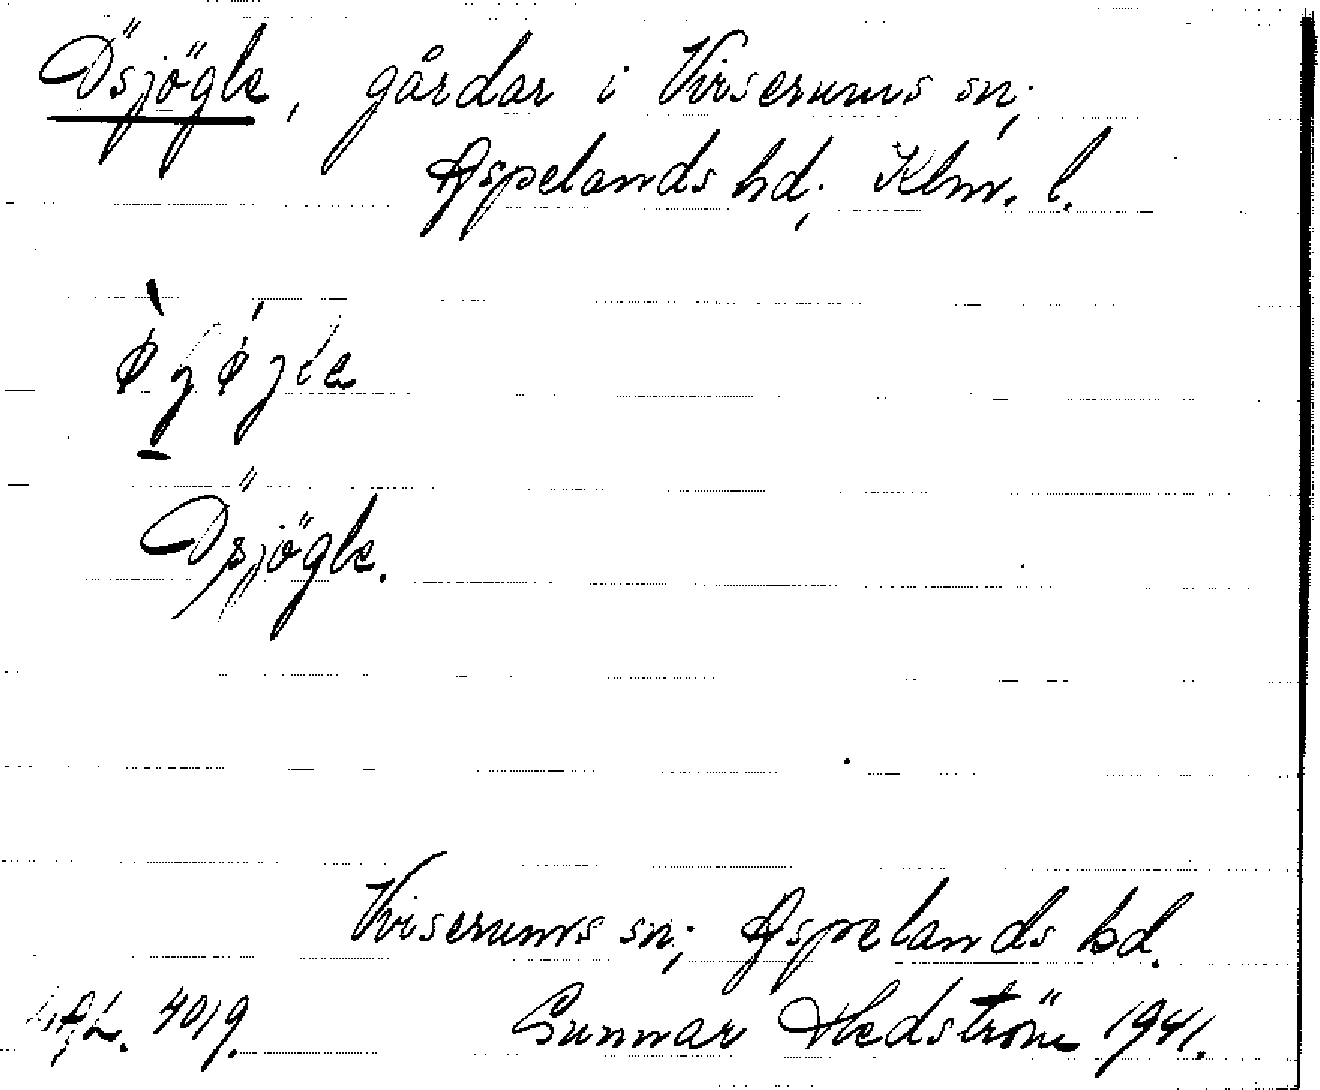 Ösjögle, gårdar i Virserums sn;
Aspelands hd; Klm. l.
Ösjögle.
Virserums sn; Aspelands hd.
4019. Gunnar Hedström 1941.